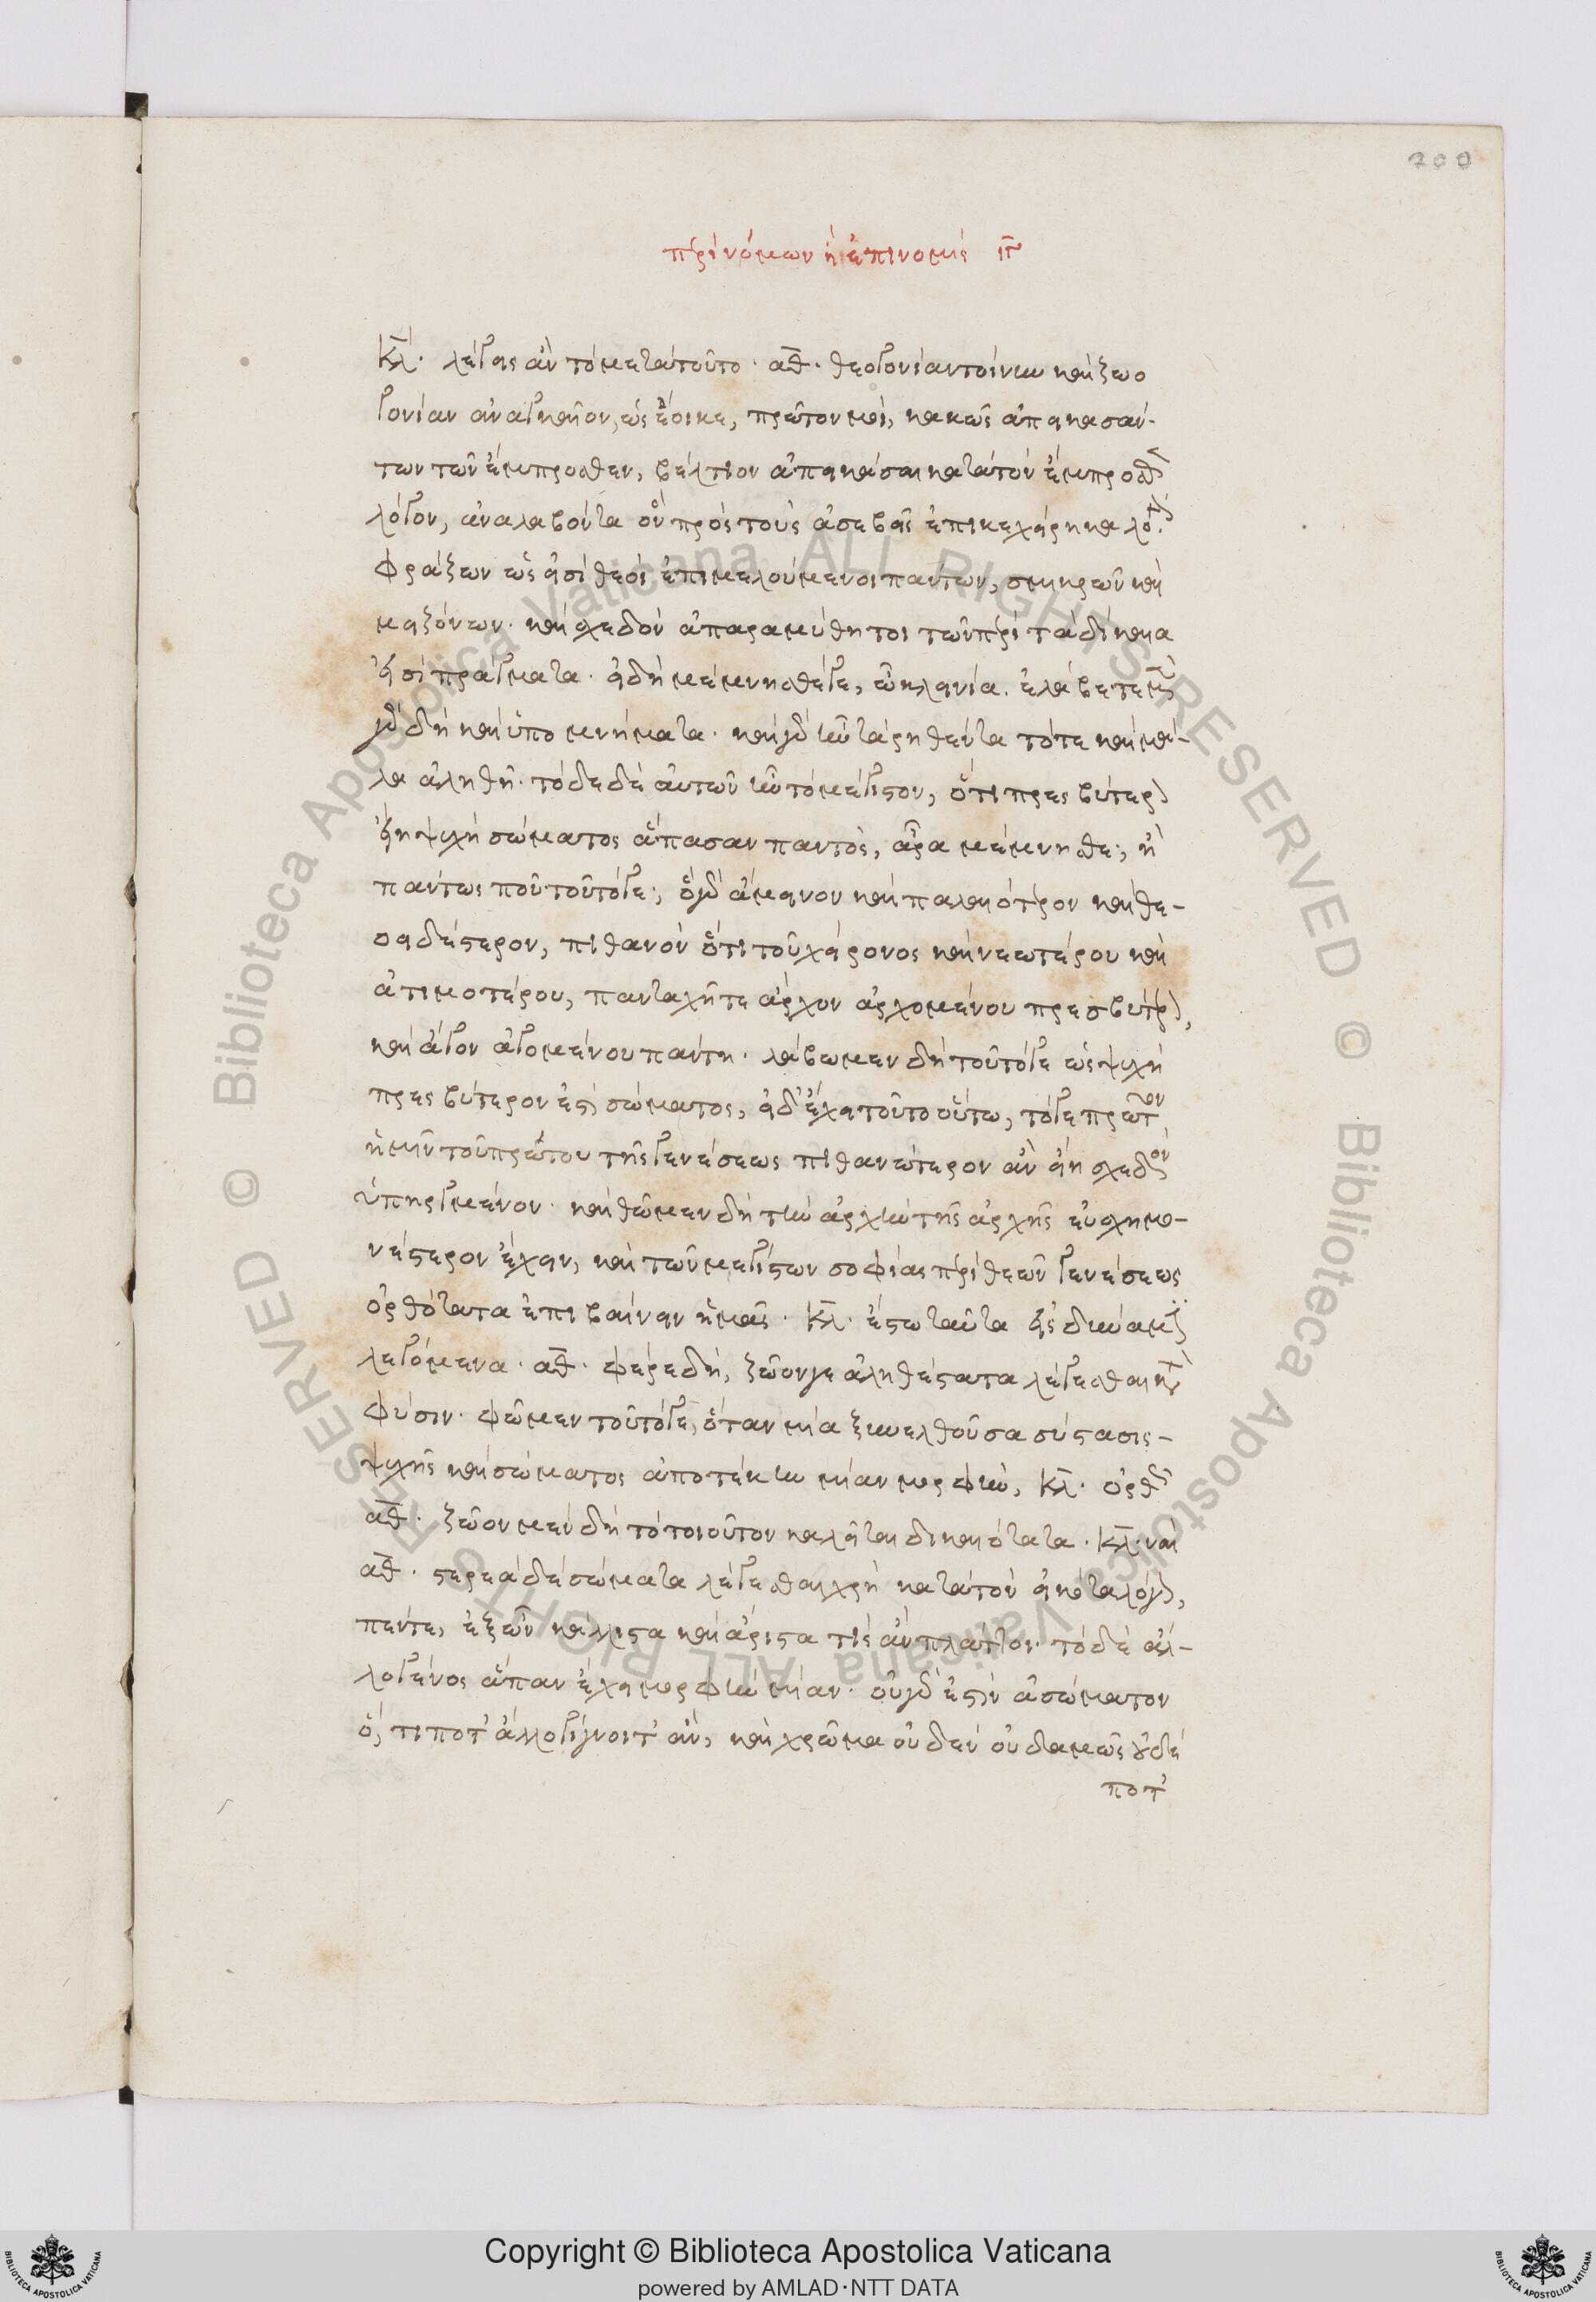 200
περὶ νόμων ἢ ἐπινομὶς ιγ
κλ. λέγεις ἂν τὸ μετὰ τοῦτο. αθ. θεογονίαν τοίνυν καὶ ζωο
γονίαν ἀναγκαῖον, ὡς ἔοικε, πρῶτον μοι, κακῶς ἀπεικασάν-
των τῶν ἔμπροσθεν, βέλτιον ἀπεικάσαι κατὰ τὸν ἔμπροσθεν
λόγον, ἀναλαβόντα ὃν πρὸς τοὺς ἀσεβεῖς ἐπικεχείρηκα λόγον.
φράζων ὡς εἰσὶ θεοὶ ἐπιμελούμενοι πάντων, σμικρῶν καὶ
μειζόνων. καὶ σχεδὸν ἀπαραμύθητοι τῶν περὶ τὰ δίκαια
εἰσὶ πράγματα. εἰ δὴ μέμνησθέ γε, ὦ κλεινία. ἐλάβετε μὲν
γὰρ δὴ καὶ ὑπομνήματα. καὶ γὰρ ἦν τὰ ῥηθέντα τότε καὶ μά-
λα ἀληθῆ. τόδε δὲ αὐτῶν ἦν τὸ μέγιστον, ὅτι πρεσβύτερον
εἴη ψυχὴ σώματος ἅπασα παντὸς, ἆρα μέμνησθε; ἢ
πάντως που τοῦτό γε; ὃ γὰρ ἄμεινον καὶ παλαιότερον καὶ θε-
οειδέστερον, πιθανὸν ὅτι τοῦ χείρονος καὶ νεωτέρου καὶ
ἀτιμοτέρου, πανταχῆ τε ἄρχον ἀρχομένου πρεσβύτερον,
καὶ ἄγον ἀγομένου πάντη. λάβωμεν δὴ τοῦτό γε ὡς ψυχὴ
πρεσβύτερον ἐστὶ σώματος, εἰ δ᾽ ἔχει τοῦτο οὕτω, τό γε πρῶτον
ἡμῖν τοῦ πρώτου τῆς γενέσεως πιθανώτερον ἂν εἴη σχεδὸν
ὑπηργμένον. καὶ θῶμεν δὴ τὴν ἀρχὴν τῆς ἀρχῆς εὐσχημο-
νέστερον ἔχειν, καὶ τῶν μεγίστων σοφίας περὶ θεῶν γενέσεως
ὀρθότατα ἐπιβαίνειν ἡμᾶς. κλ. ἔστω ταῦτα εἰς δύναμιν
λεγόμενα. αθ. φέρε δὴ, ζῶόν γε ἀληθέστατα λέγεσθαι κατὰ
φύσιν. φῶμεν τοῦτό γε, ὅταν μία ξυνελθοῦσα σύστασις-
ψυχῆς καὶ σώματος ἀποτέκῃ μίαν μορφὴν, κλ. ὀρθῶς
αθ. ζῶον μὲν δὴ τὸ τοιοῦτον καλεῖται δικαιότατα. κλ. ναί
αθ. στερεὰ δὲ σώματα λέγεσθαι χρὴ κατὰ τὸν εἰκότα λόγον,
πέντε, ἐξ ὧν κάλλιστα καὶ ἄριστα τὶς ἂν πλάττοι. τὸ δὲ ἀλ-
λο γένος ἅπαν ἔχει μορφὴν μίαν. οὐ γὰρ ἐστὶν ἀσώματον
ὅ, τι ποτ᾽ ἄλλο γίγνοιτ᾽ ἂν, καὶ χρῶμα οὐδὲν οὐδαμῶς οὐδέ
ποτ᾽
Copyright © Biblioteca Apostolica Vaticana
powered by AMLAD·NTT DATA
© Biblioteca Apostolica Vaticana ALL RIGHTS RESERVED
© Biblioteca Apostolica Vaticana ALL RIGHTS RESERVED
BIBLIOTECA APOSTOLICA VATICANA
BIBLIOTECA APOSTOLICA VATICANA